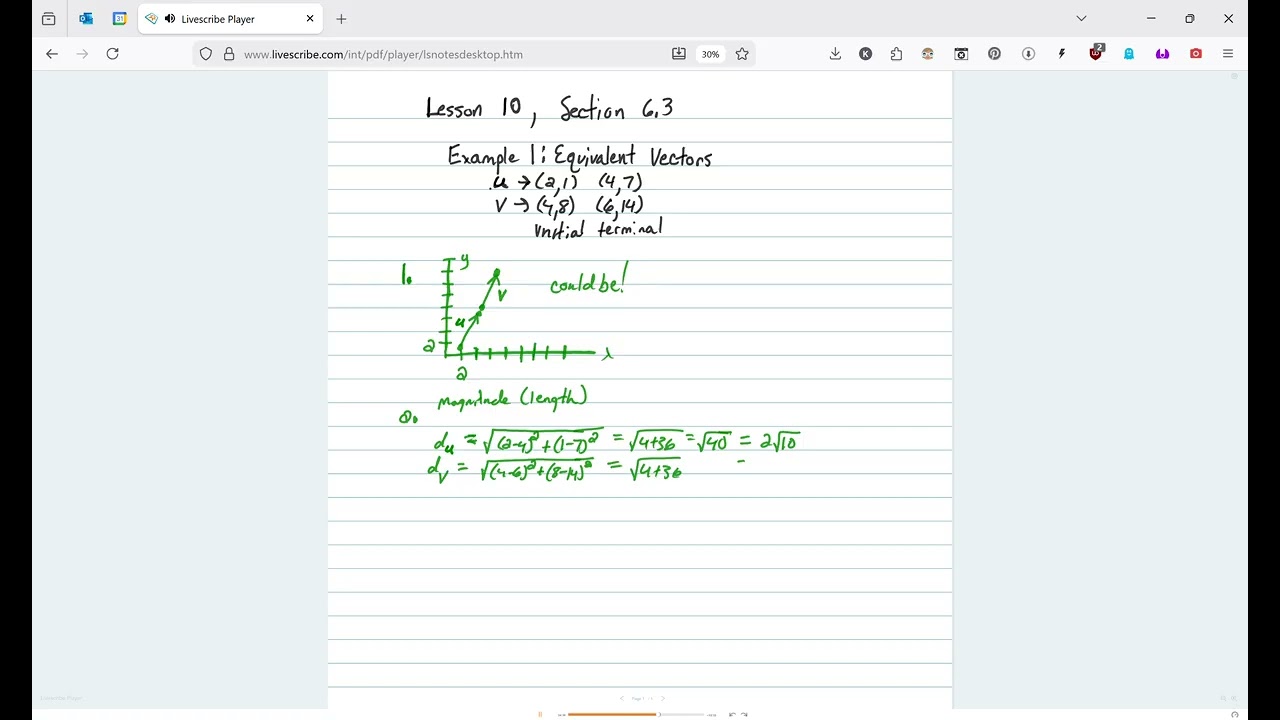 Livescribe Player
www.livescribe.com/int/pdf/player/lsnotesdesktop.htm
30%
2
Lesson 10, Section 6.3
Example 1: Equivalent Vectors
u → (2,1) (4,7)
v → (4,8) (6,14)
initial terminal
1.
y
could be!
v
u
2
x
2
magnitude (length)
2.
d_u = √((2-4)² + (1-7)²) = √(4+36) = √40 = 2√10
d_v = √((4-6)² + (8-14)²) = √(4+36) =
Livescribe Player